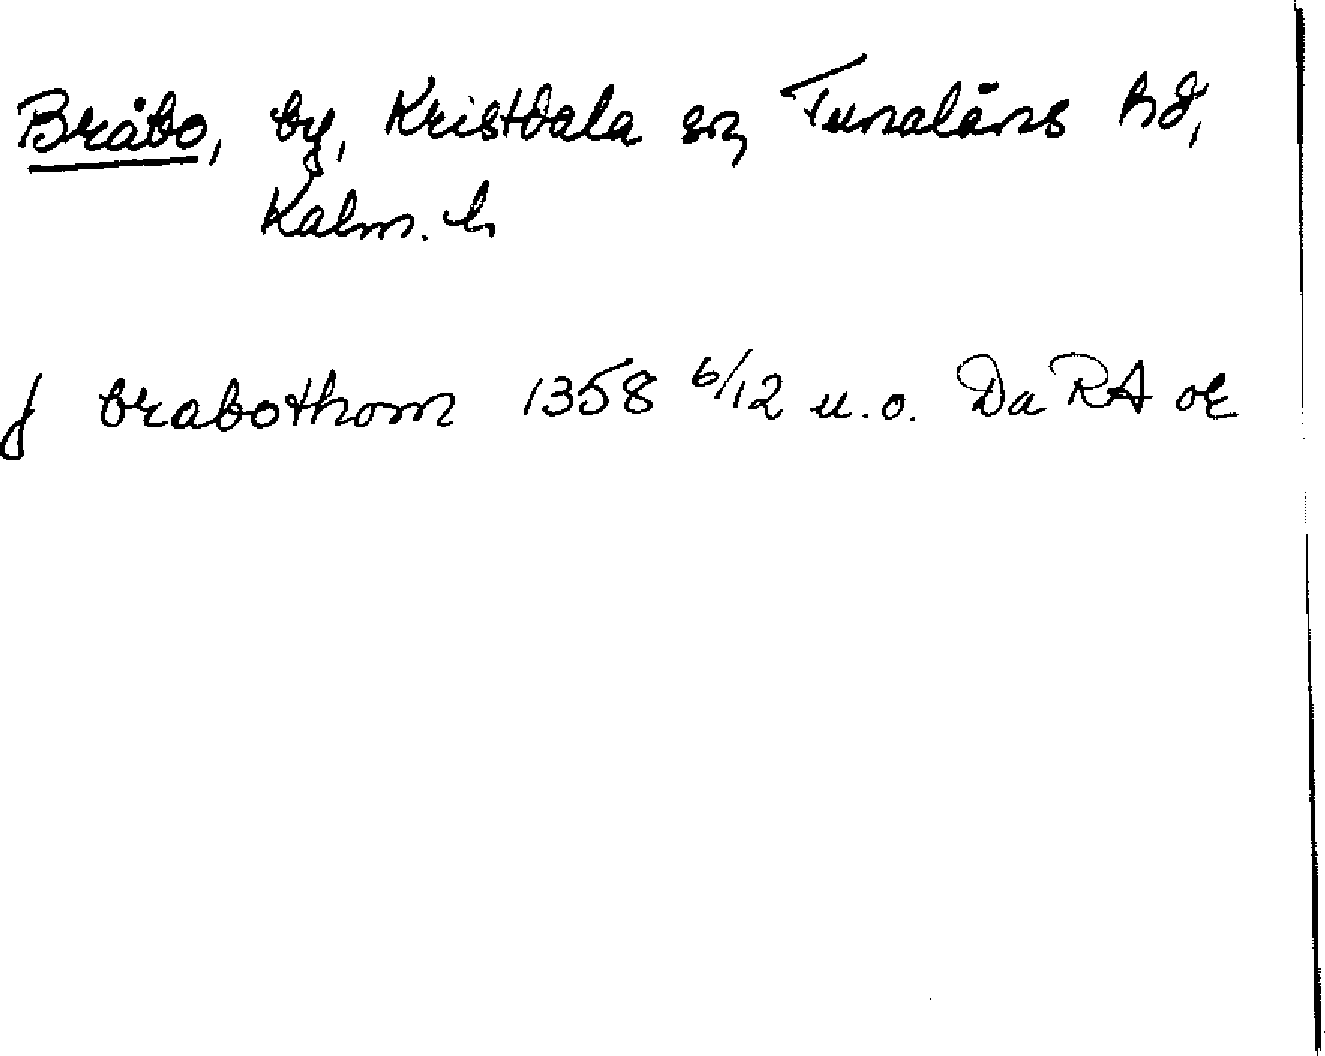 Bråbo, by, Kristdala sn, Tunaläns hd,
Kalm. l.
j brabothom 1358 6/12 u.o. Da RA or